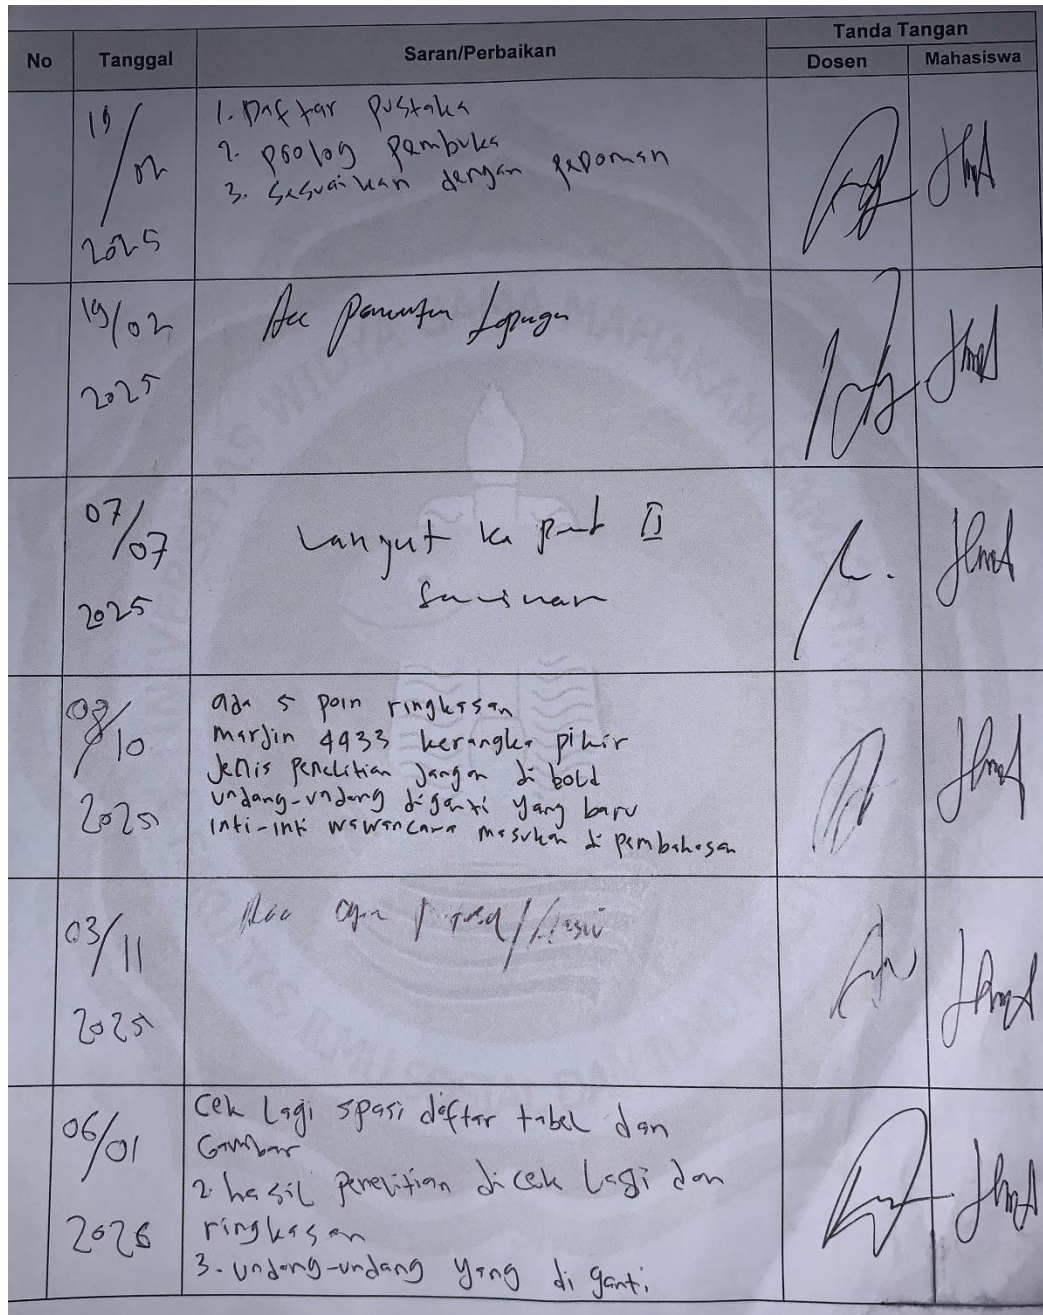 No Tanggal Saran/Perbaikan Tanda Tangan
Dosen Mahasiswa
19/02
2025
1. Daftar pustaka
2. prolog pembuka
3. Sesuaikan dengan pedoman
19/02
2025
Acc
07/07
2025
Lanjut ke pemb II
08/10
2025
ada 5 poin ringkasan
marjin 4433 kerangka pikir
Jenis penelitian Jangan di bold
undang-undang diganti yang baru
Inti-inti wawancara masukan di pembahasan
03/11
2025
06/01
2026
Cek Lagi spasi daftar tabel dan
Gambar
2. hasil penelitian di cek Lagi dan
ringkasan
3. undang-undang yang di ganti